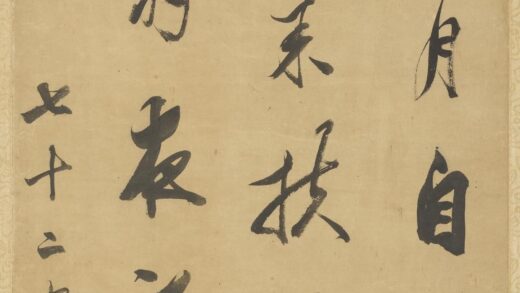 月自
来扶
夜
七十二